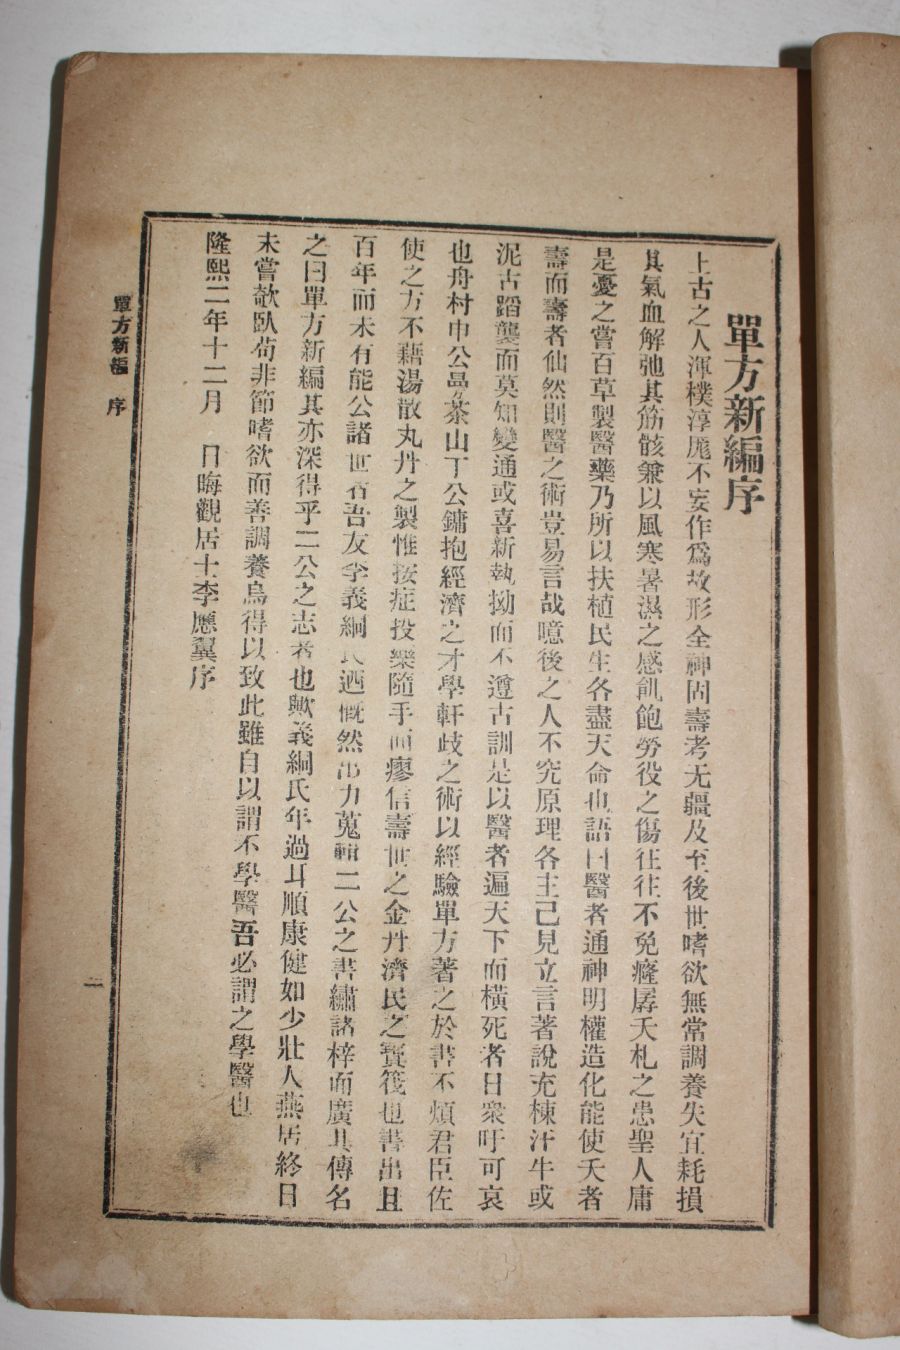 單方新編序
上古之人渾樸淳厖不妄作爲故形全神固壽考无疆及至後世嗜欲無常調養失宜耗損
其氣血解弛其筋骸兼以風寒暑濕之感飢飽勞役之傷往往不免癃孱夭札之患聖人庸
是憂之嘗百草製醫藥乃所以扶植民生各盡天命也語曰醫者通神明權造化能使夭者
壽而壽者仙然則醫之術豈易言哉噫後之人不究原理各主己見立言著說充棟汗牛或
泥古蹈襲而莫知變通或喜新執拗而不遵古訓是以醫者遍天下而橫死者日衆吁可哀
也舟村申公曼茶山丁公鏞抱經濟之才學軒歧之術以經驗單方著之於書不煩君臣佐
使之方不藉湯散丸丹之製惟按症投藥隨手而瘳信壽世之金丹濟民之寶筏也書出且
百年而未有能公諸世者吾友李義絅氏迺慨然出力蒐輯二公之書繡諸梓而廣其傳名
之曰單方新編其亦深得乎二公之志者也歟義絅氏年過耳順康健如少壯人燕居終日
未嘗欹臥苟非節嗜欲而善調養烏得以致此雖自以謂不學醫吾必謂之學醫也
隆熙二年十二月 日晦觀居士李應翼序
單方新編 序 二